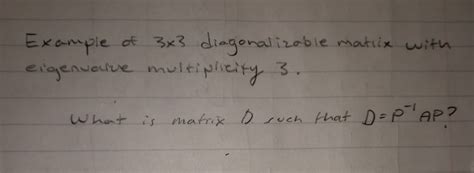 Example of 3x3 diagonalizable matrix with
eigenvalue multiplicity 3.
What is matrix D such that D = P⁻¹AP?